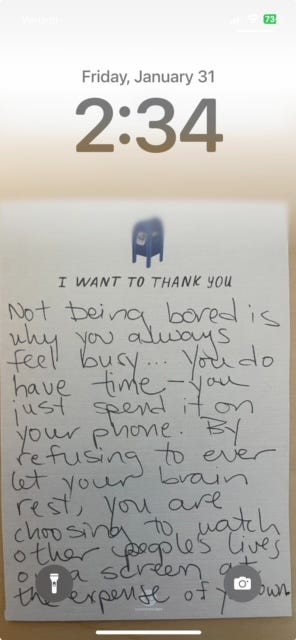 Verizon
73
Friday, January 31
2:34
I WANT TO THANK YOU
Not being bored is
why you always
feel busy... You do
have time - you
just spend it on
your phone. By
refusing to ever
let your brain
rest, you are
choosing to watch
other peoples lives
on a screen at
the expense of your own